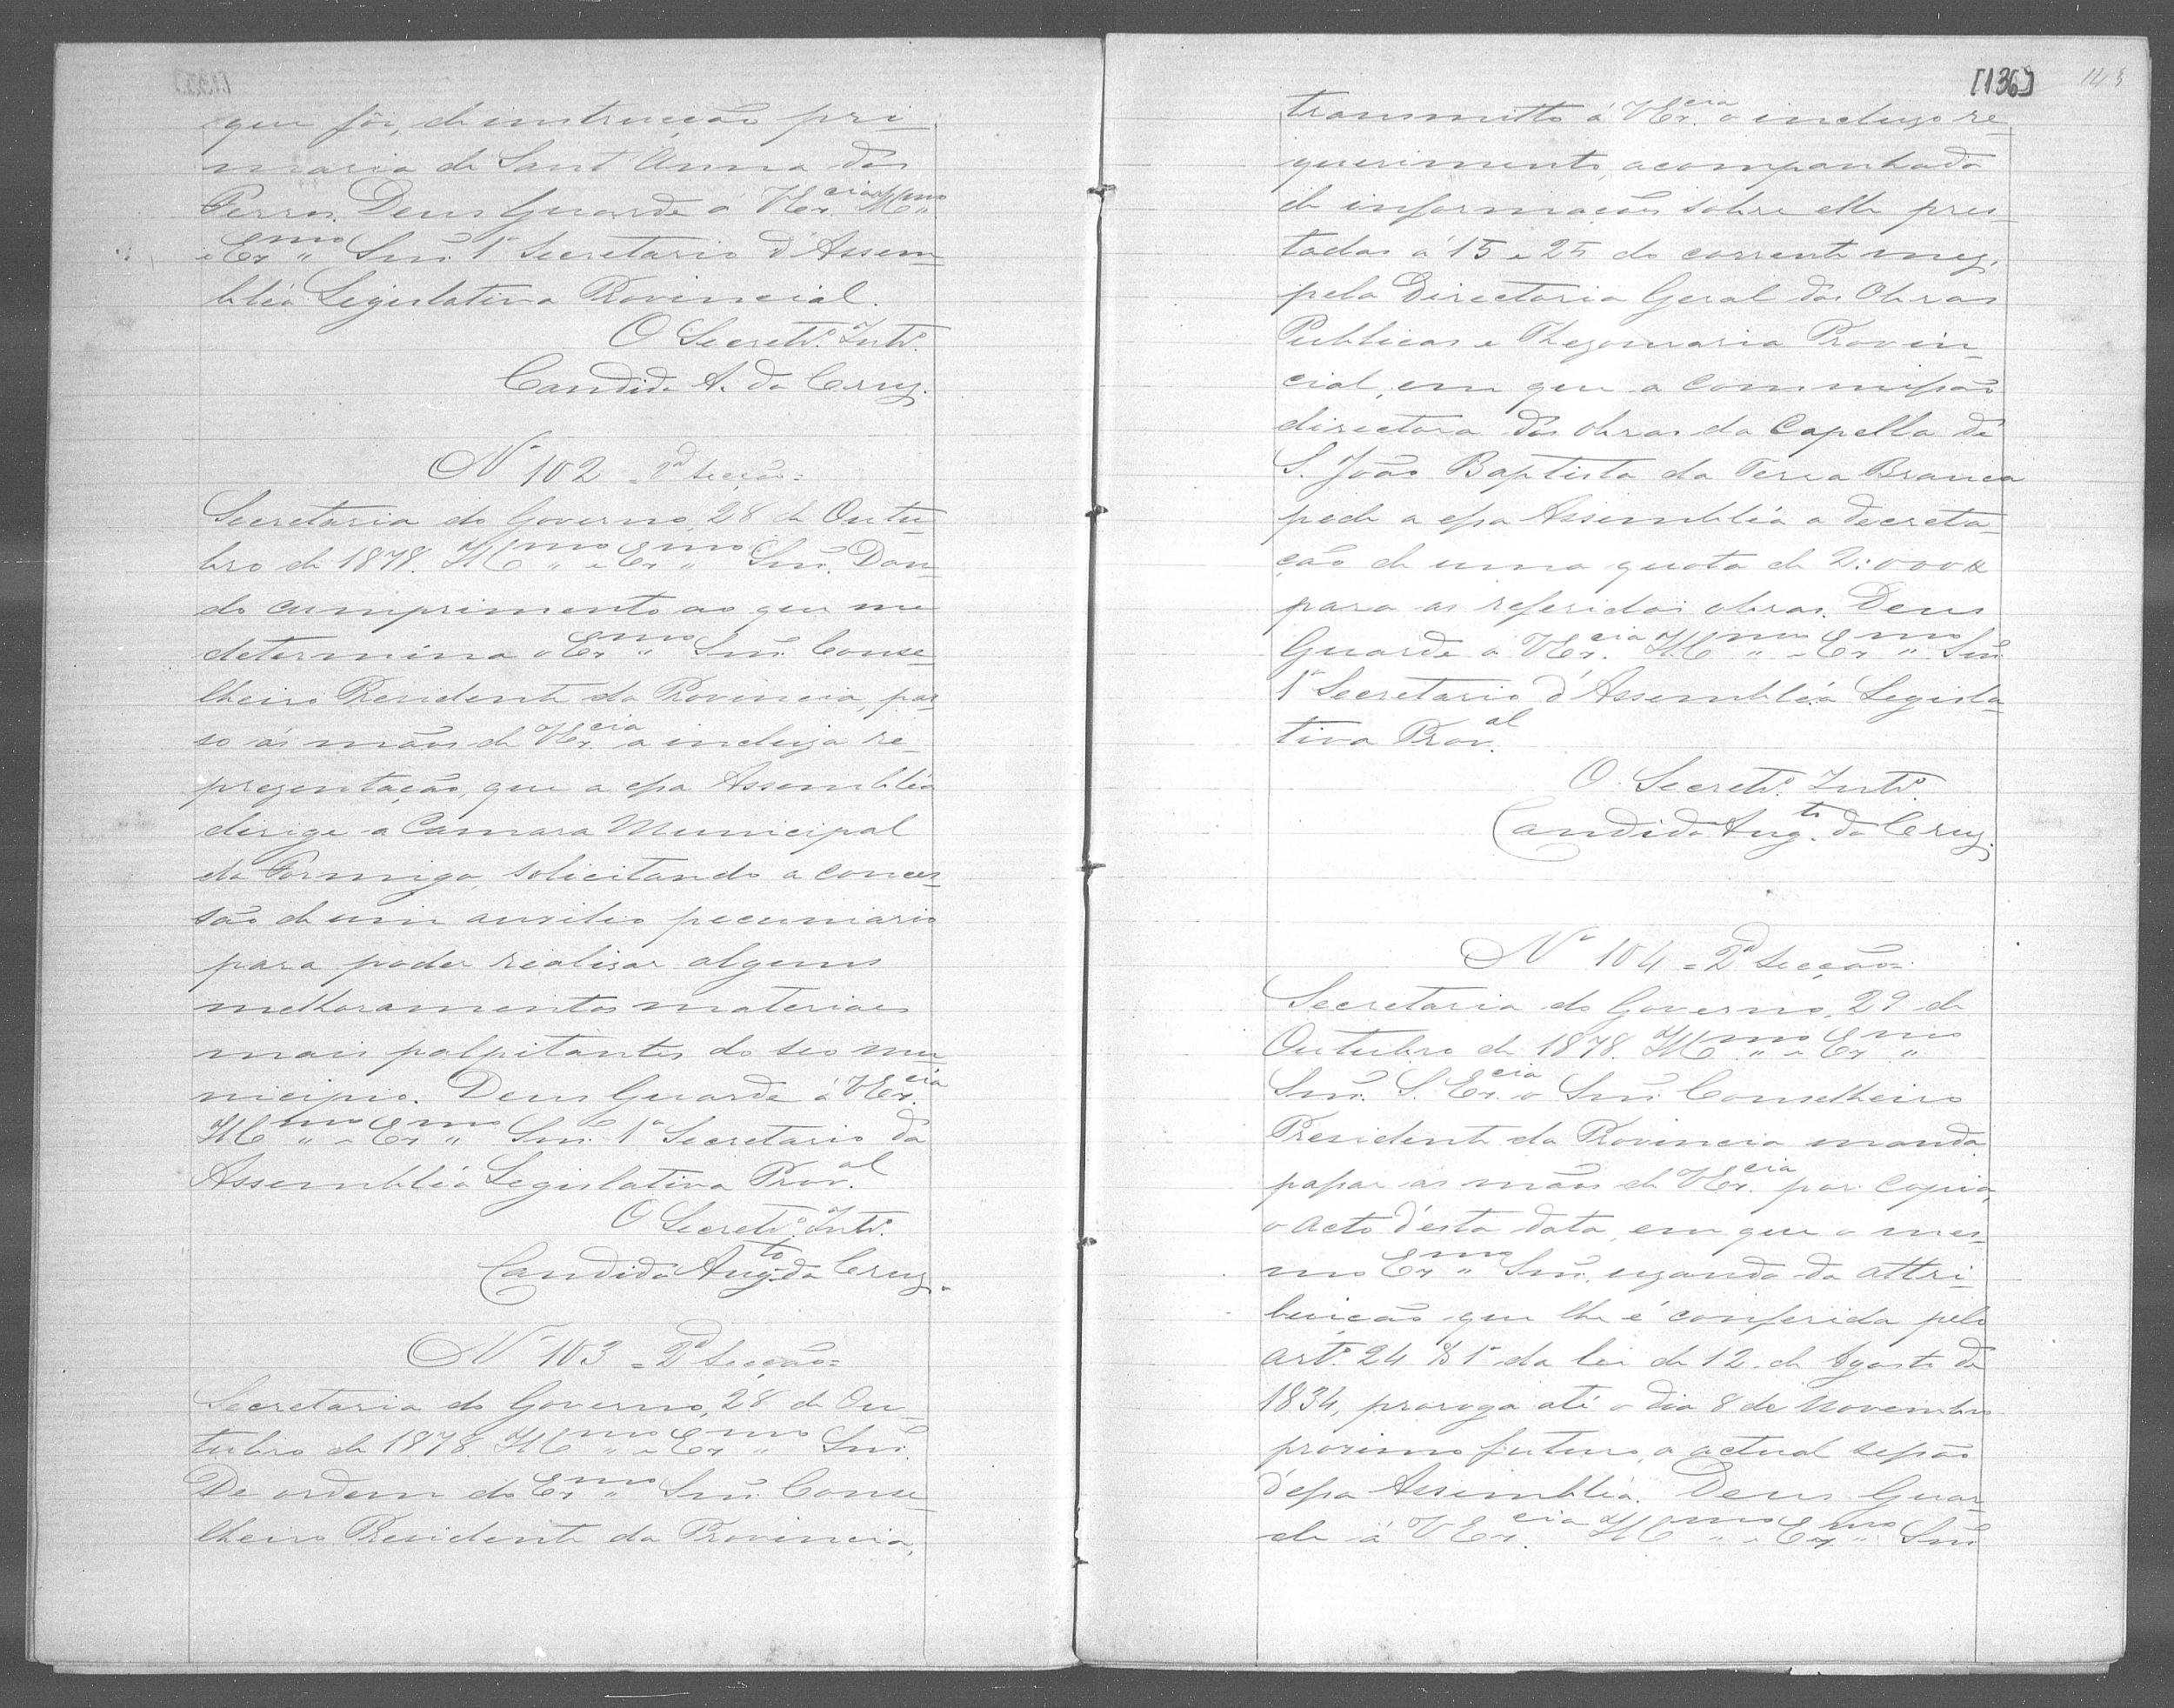 que fôr, de instrucção pri-
maria de Sant'Anna dos
Ferros. Deus Guarde á VEx.cia Ill.mo
e Ex.mo Snr. 1º Secretario d'Assem-
bléa Legislativa Provincial.
O Secretrº. Intrº.
Candido A. da Cruz.
Nº 102 = 2ª Secção =
Secretaria do Governo, 28 de Outu-
bro de 1878. Ill.mo e Ex.mo Snr. Dan-
do cumprimento ao que me
determina o Ex.mo Snr. Conse-
lheiro Presidente da Provincia, pas-
so ás mãos de VEx.cia a incluza re-
prezentação, que a essa Assembléa
dirige a Camara Municipal
da Formiga, solicitando a conces-
são de um auxilio pecuniario
para poder realisar alguns
melhoramentos materiaes
mais palpitantes do seo mu-
nicipio. Deus Guarde á VEx.cia
Ill.mo e Ex.mo Snr. 1º Secretario da
Assembléa Legislativa Prov.al
O Secretrº. Intrº.
Candido Aug.to da Cruz.
Nº 103 = 2ª Secção =
Secretaria do Governo, 28 de Ou-
tubro de 1878. Ill.mo e Ex.mo Snr.
De ordem do Ex.mo Snr. Conse-
lheiro Presidente da Provincia,
[136]
transmitto á VEx.cia o incluzo re-
querimento, acompanhado
de informações sobre elle pres-
tadas á 15 e 25 do corrente mez,
pela Directoria Geral das Obras
Publicas e Thezouraria Provin-
cial, em que a Commissão
directora das obras da Capella de
S. João Baptista da Terra Branca
pede a essa Assembléa a decreta-
ção de uma quota de 2:000$
para as referidas obras. Deus
Guarde a VEx.cia Ill.mo e Ex.mo Snr.
1º Secretario d'Assembléa Legisla-
tiva Prov.al
O Secretrº. Intrº.
Candido Aug.to da Cruz.
Nº 104 = 2ª Secção =
Secretaria do Governo, 29 de
Outubro de 1878. Ill.mo e Ex.mo
Snr. S. Ex.cia o Snr. Conselheiro
Presidente da Provincia manda
passar ás mãos de VEx.cia por copia,
o acto d'esta data, em que o mes-
mo Ex.mo Snr., uzando da attri-
buição que lhe é conferida pelo
artº. 24 § 1º da lei de 12 de Agosto de
1834, proroga até o dia 8 de Novembro
proximo futuro, a actual sessão
d'essa Assembléa. Deus Guar-
de á VEx.cia Ill.mo e Ex.mo Snr.